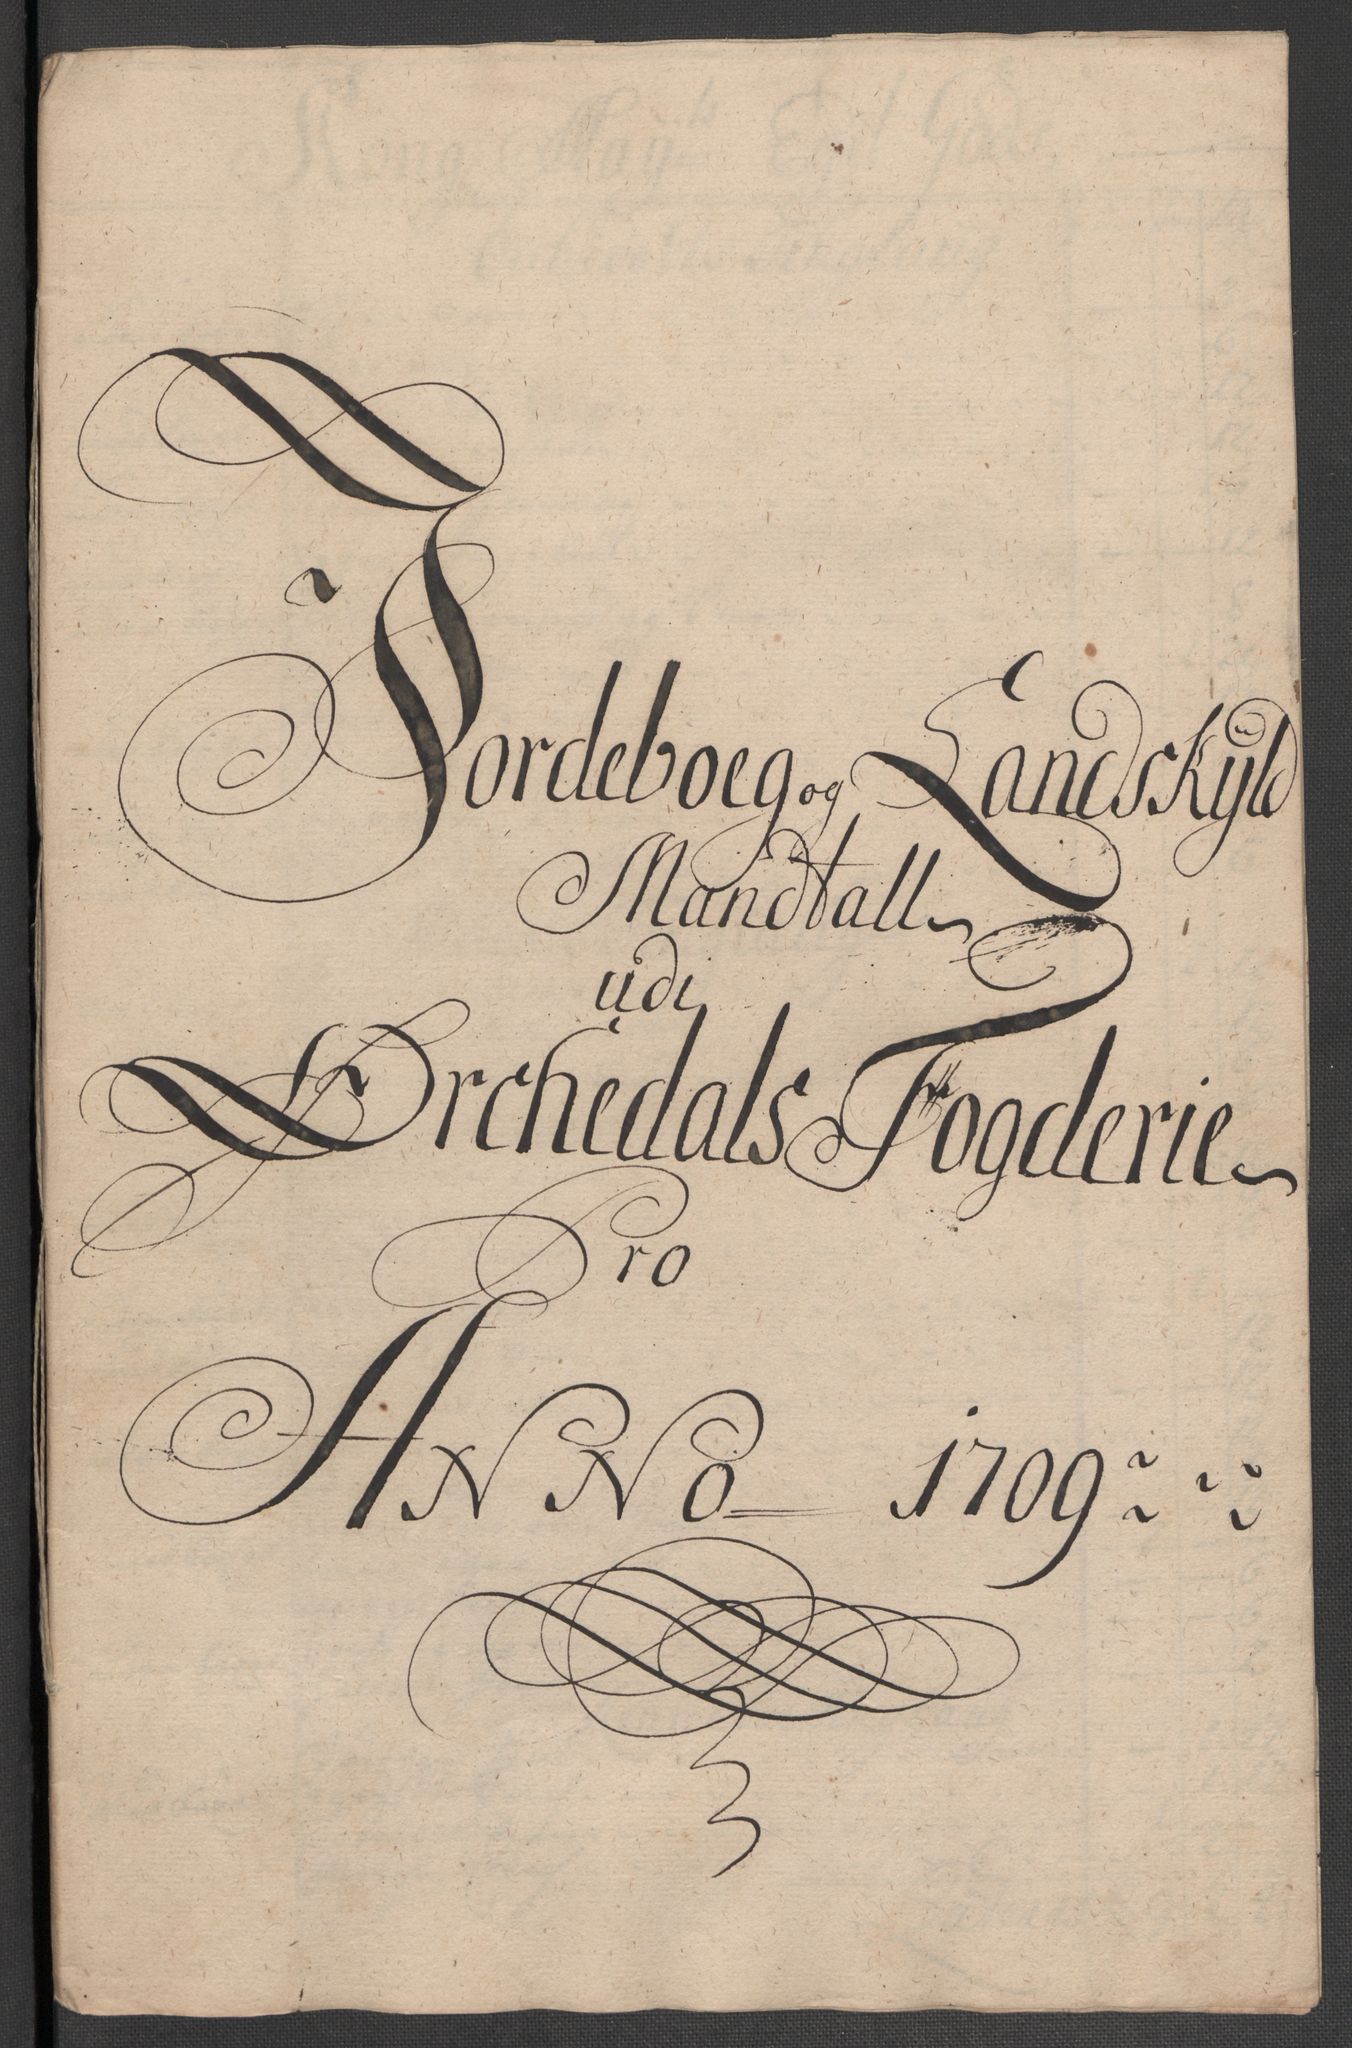 Jordeboeg og Landskÿld
Mandtall
udi
Orchedals Fogderie
Pro
ANNO 1709